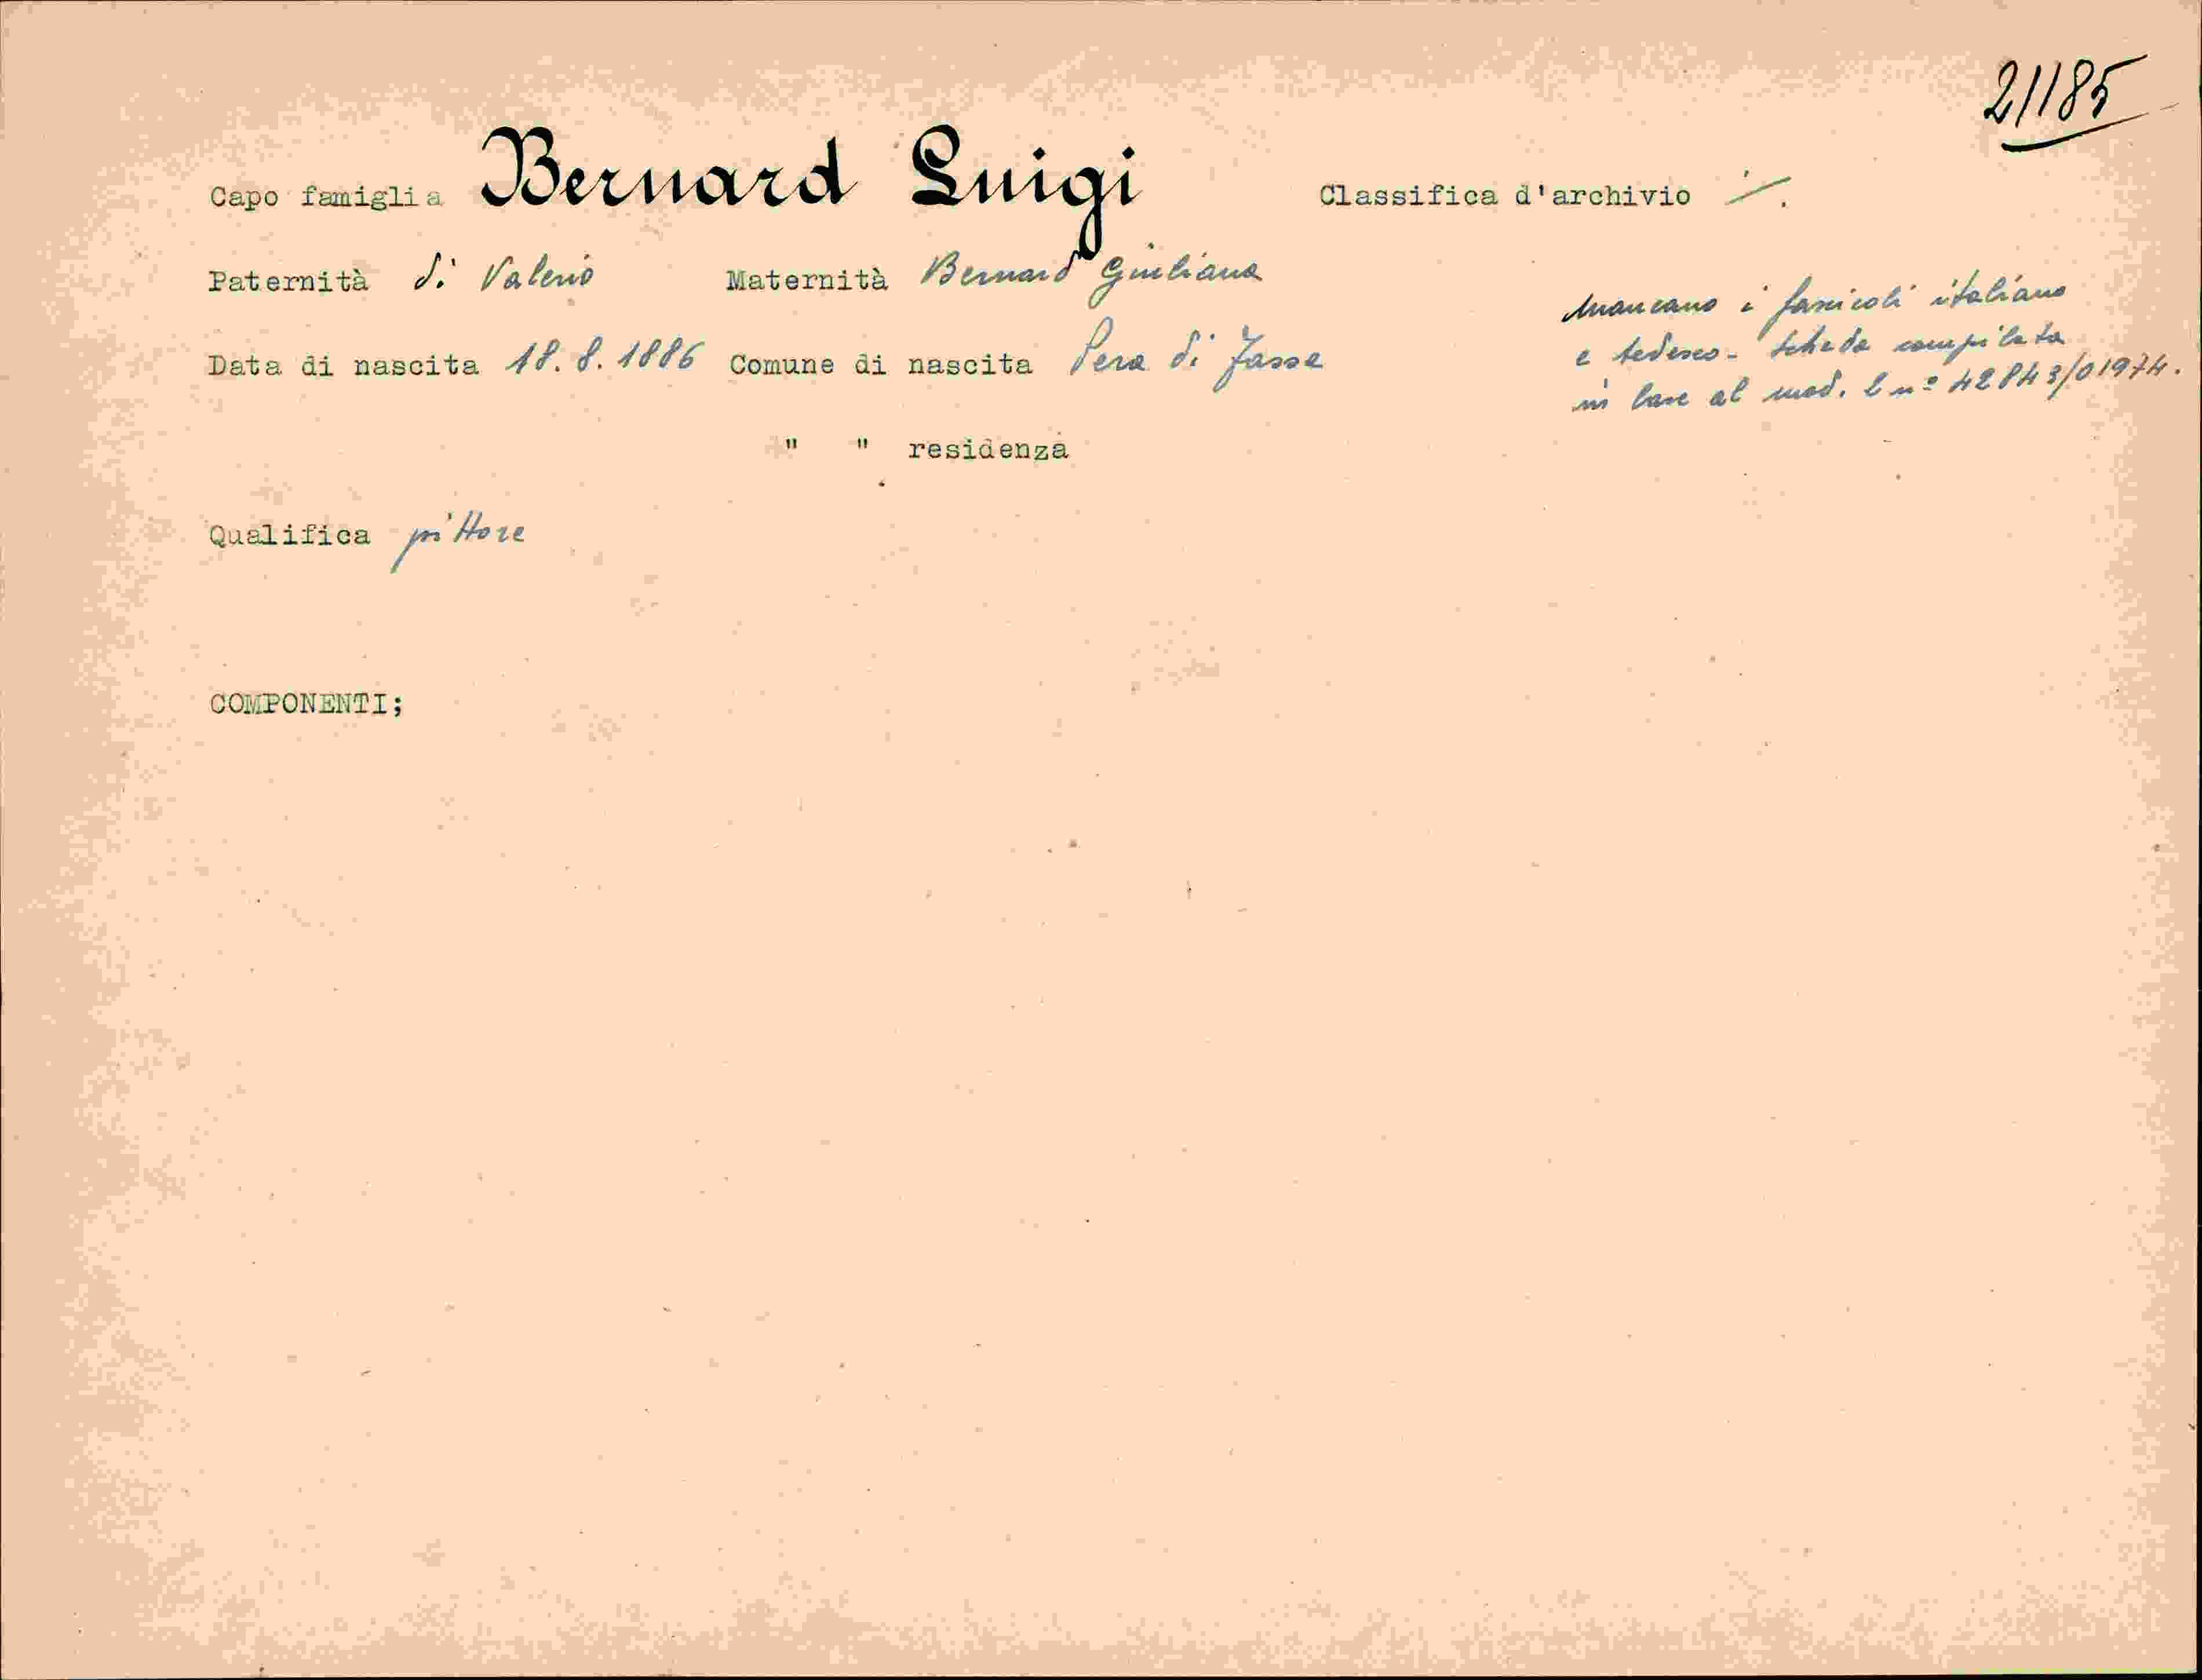 21185
Capo famiglia Bernard Luigi Classifica d'archivio ./.
Paternità di Valerio Maternità Bernard Giuliana
Mancano i fascicoli italiano
Data di nascita 18.8.1886 Comune di nascita Pera di Fassa
e tedesco - scheda compilata
in base al mod. 2 n° 42843/01974.
" " residenza
Qualifica pittore
COMPONENTI;